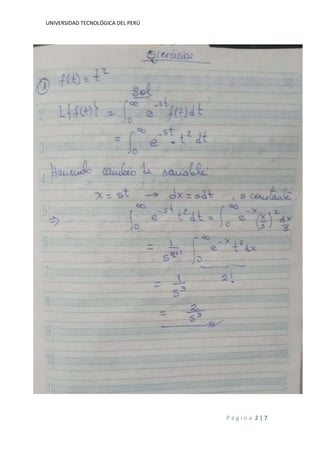 UNIVERSIDAD TECNOLÓGICA DEL PERÚ
Ejercicios
① f(t) = t²
Sol
L{f(t)} = ∫₀^∞ e^{-st} f(t) dt
= ∫₀^∞ e^{-st} · t² dt
Haciendo cambio de variable
x = st → dx = sdt , s constante
⇒ ∫₀^∞ e^{-st} t² dt = ∫₀^∞ e^{-x} (x/s)² dx/s
= 1/s^{2+1} ∫₀^∞ e^{-x} t² dx
2!
= 1/s³
= 2/s³
Página 2|7